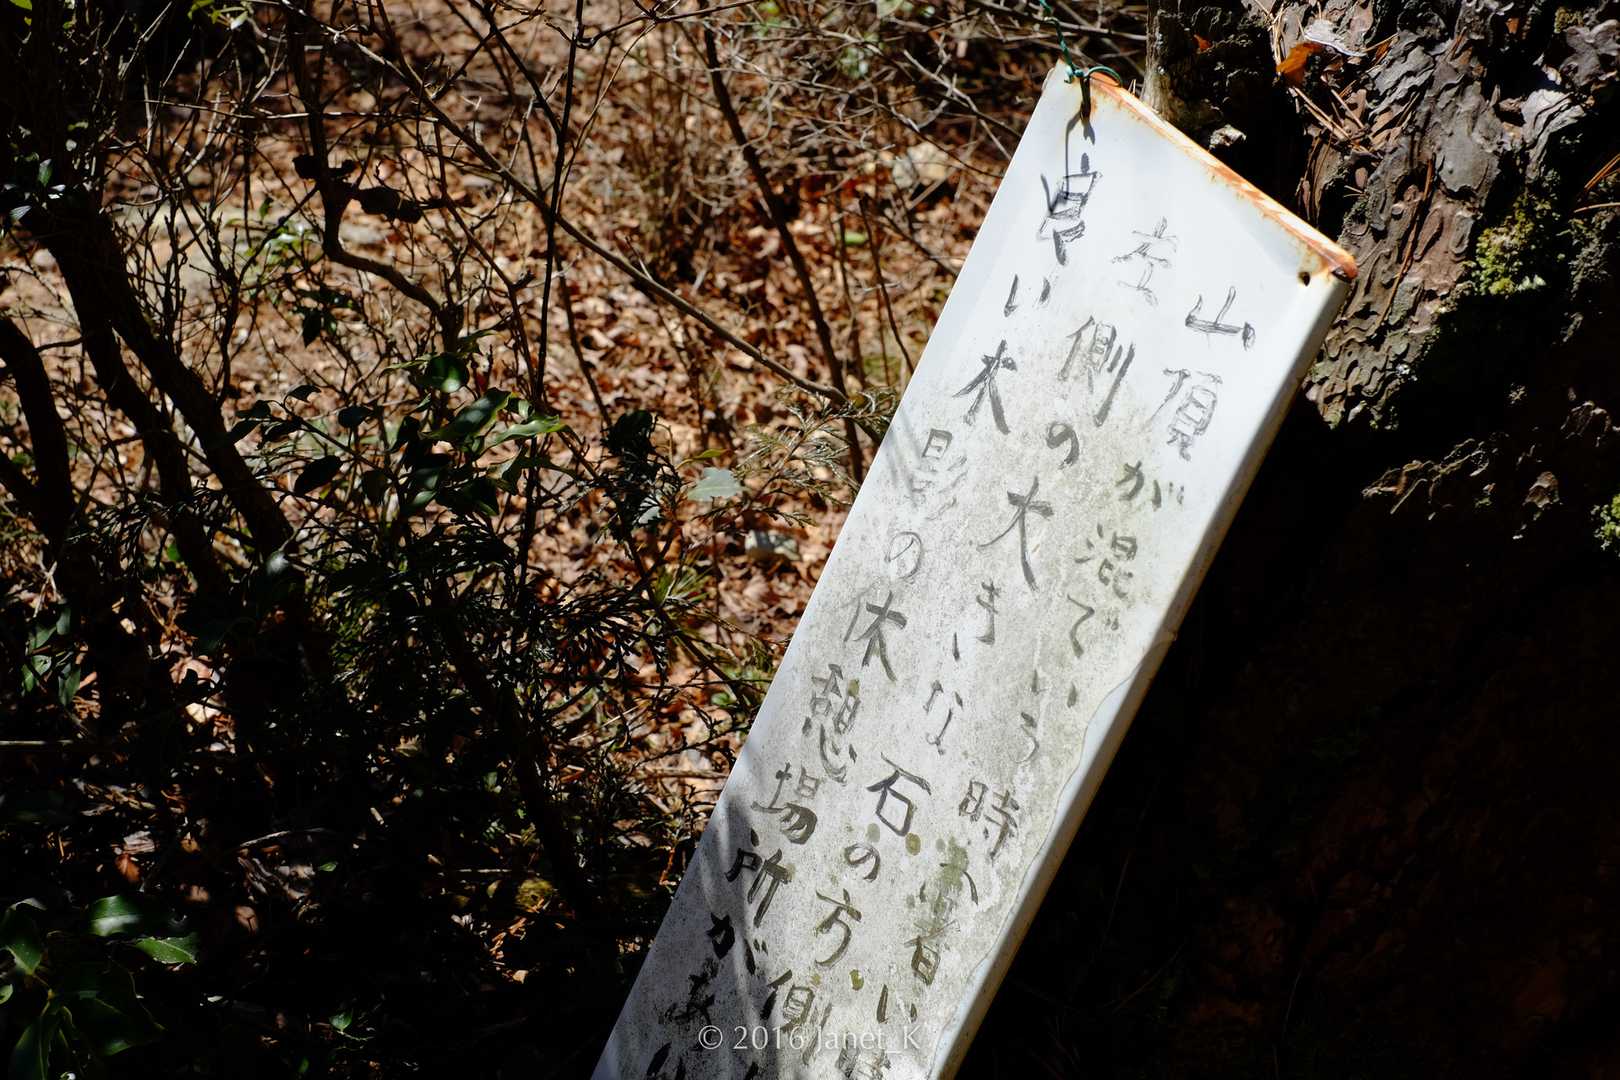 山頂が混でいう時、暑い
左側の大きな石の方、側
良い木影の休憩場所があ
© 2016 Janet_K